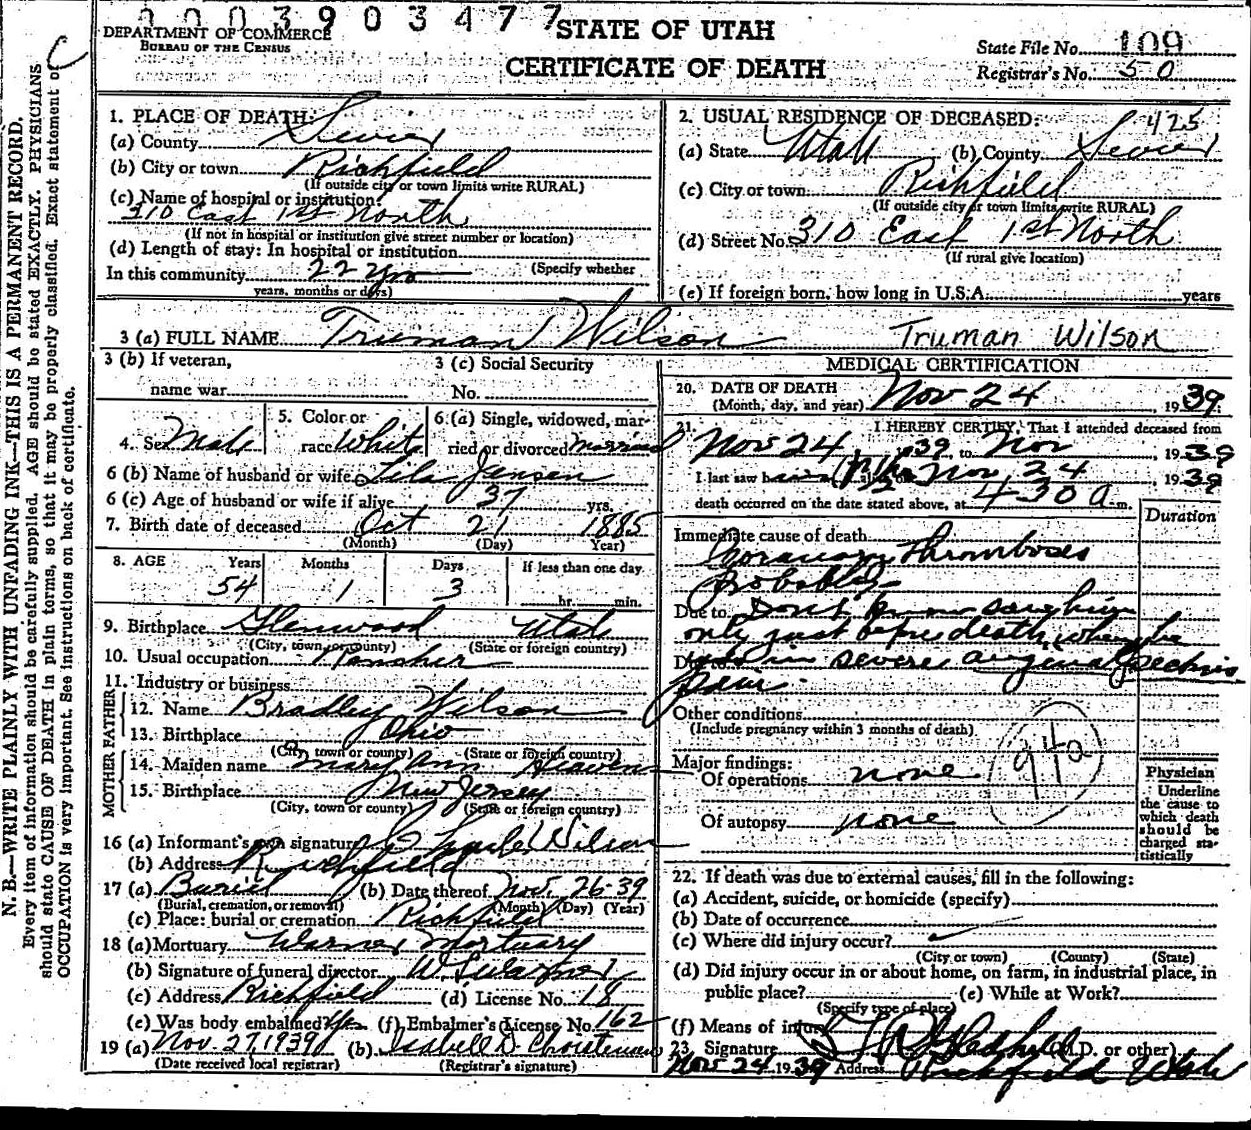 0003903477
DEPARTMENT OF COMMERCE
BUREAU OF THE CENSUS
STATE OF UTAH
CERTIFICATE OF DEATH
State File No. 109
Registrar's No. 50
C
N. B.—WRITE PLAINLY WITH UNFADING INK—THIS IS A PERMANENT RECORD.
Every item of information should be carefully supplied. AGE should be stated EXACTLY. PHYSICIANS
should state CAUSE OF DEATH in plain terms, so that it may be properly classified. Exact statement of
OCCUPATION is very important. See instructions on back of certificate.
1. PLACE OF DEATH:
(a) County Sevier
(b) City or town Richfield
(If outside city or town limits write RURAL)
(c) Name of hospital or institution:
310 East 1st North
(If not in hospital or institution give street number or location)
(d) Length of stay: In hospital or institution
(Specify whether
In this community 22 yrs
years, months or days)
2. USUAL RESIDENCE OF DECEASED: 425
(a) State Utah (b) County Sevier
(c) City or town Richfield
(If outside city or town limits write RURAL)
(d) Street No. 310 East 1st North
(If rural give location)
(e) If foreign born, how long in U.S.A. years
3 (a) FULL NAME Truman Wilson Truman Wilson
3 (b) If veteran,
name war
3 (c) Social Security
No.
4. Sex Male
5. Color or
race White
6 (a) Single, widowed, mar-
ried or divorced married
6 (b) Name of husband or wife Lila Jensen
6 (c) Age of husband or wife if alive 37 yrs.
7. Birth date of deceased Oct 21 1885
(Month) (Day) Year)
8. AGE Years Months Days If less than one day
54 1 3 hr. min.
9. Birthplace Glenwood Utah
(City, town, or county) (State or foreign country)
10. Usual occupation Rancher
11. Industry or business
FATHER
12. Name Bradley Wilson
13. Birthplace Ohio
(City, town or county) (State or foreign country)
MOTHER
14. Maiden name Mary Ann
15. Birthplace New Jersey
(City, town or county) (State or foreign country)
16 (a) Informant's own signature Wilson
(b) Address Richfield
17 (a) Burial (b) Date thereof Nov. 26-39
(Burial, cremation, or removal) (Month) (Day) (Year)
(c) Place: burial or cremation Richfield
18 (a) Mortuary Warner Mortuary
(b) Signature of funeral director W. L. Warner
(c) Address Richfield (d) License No. 18
(e) Was body embalmed? Yes (f) Embalmer's License No. 162
19 (a) Nov. 27, 1939 (b) Isabell D Christensen
(Date received local registrar) (Registrar's signature)
MEDICAL CERTIFICATION
20. DATE OF DEATH
(Month, day, and year) Nov 24, 1939
21. I HEREBY CERTIFY, That I attended deceased from
Nov 24, 1939 to Nov, 1939
I last saw h alive on Nov 24, 1939
death occurred on the date stated above, at 4-30 a m.
Duration
Immediate cause of death
Coronary Thromboses
Probably
Due to Dont know saw him
only just before death when he
Due to was in severe anginal pectoris
pain.
Other conditions
(Include pregnancy within 3 months of death)
Major findings:
Of operations none
Of autopsy none
94a
Physician
Underline
the cause to
which death
should be
charged sta-
tistically
22. If death was due to external causes, fill in the following:
(a) Accident, suicide, or homicide (specify)
(b) Date of occurrence
(c) Where did injury occur?
(City or town) (County) (State)
(d) Did injury occur in or about home, on farm, in industrial place, in
public place? (e) While at Work?
(Specify type of place)
(f) Means of injury
23. Signature (M.D. or other)
Nov 24 1939 Address Richfield Utah